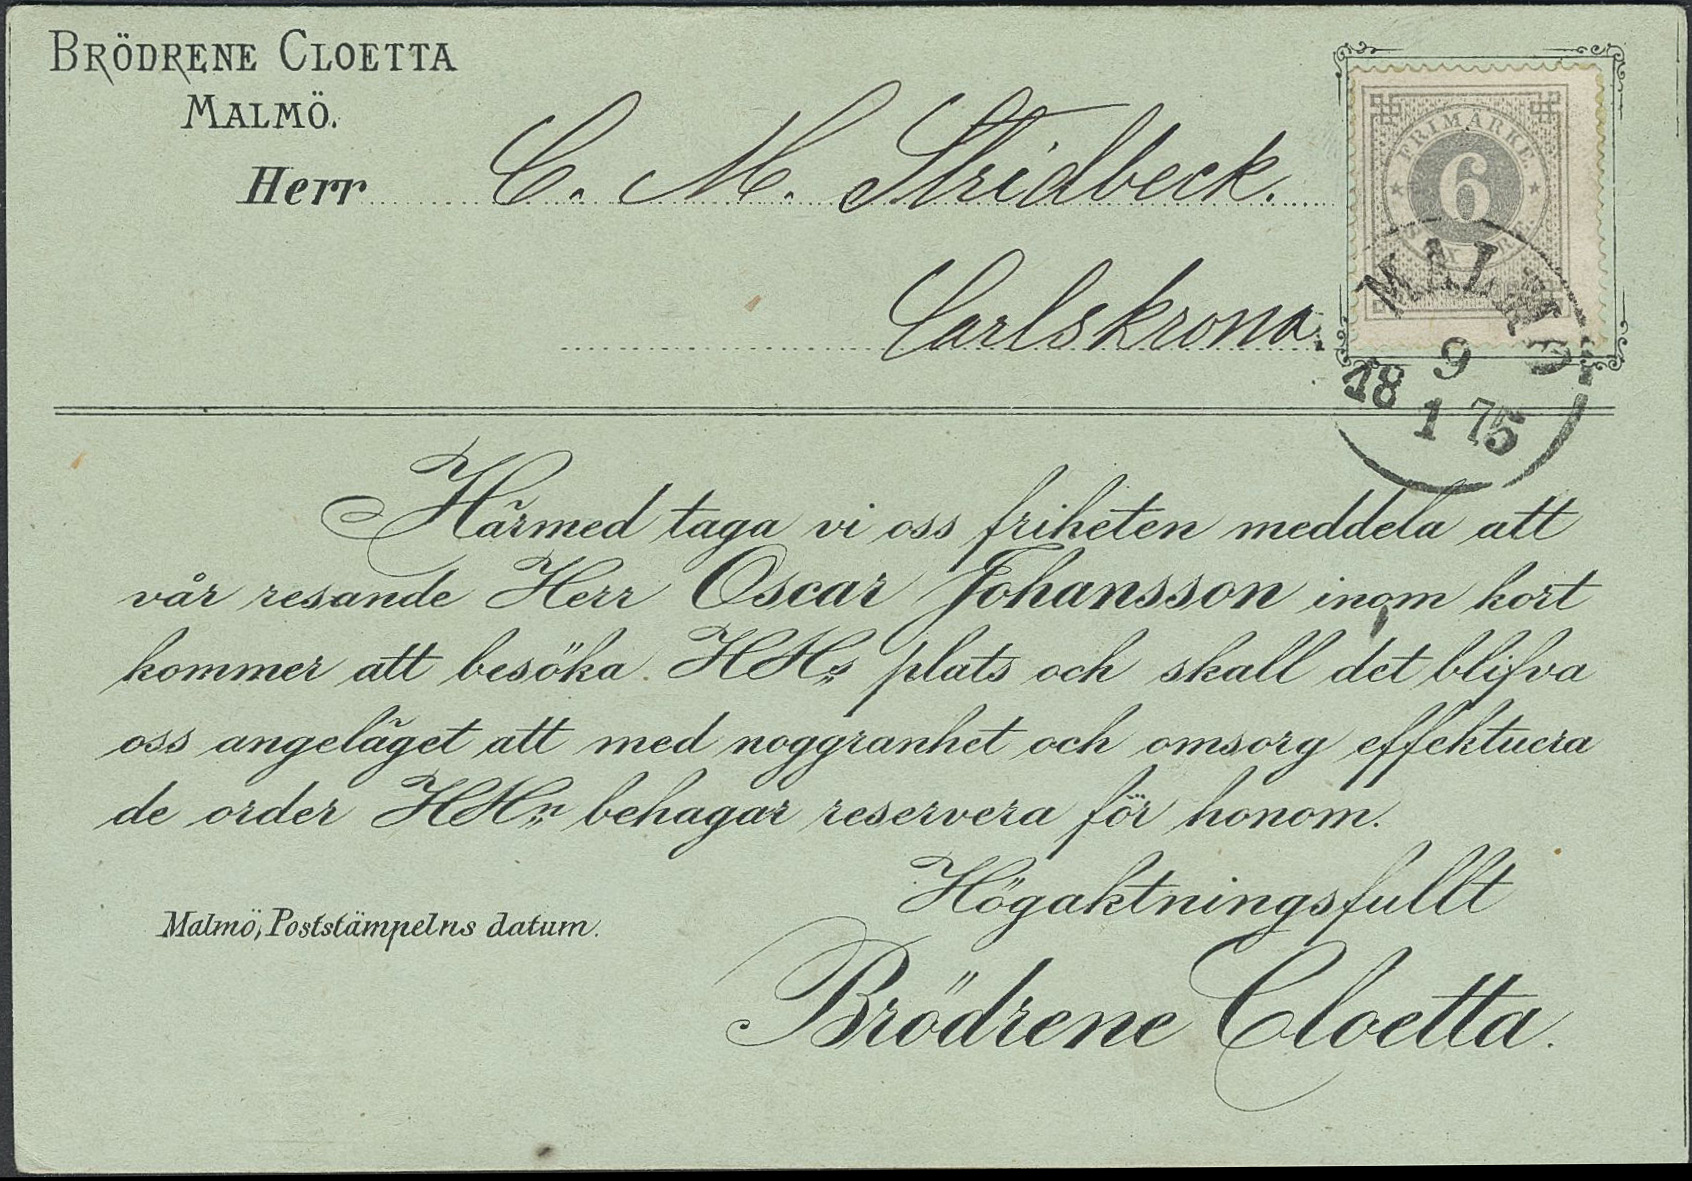 BRÖDRENE CLOETTA
MALMÖ.
Herr C. M. Stridbeck.
Carlskrona.
FRIMÄRKE
6
MALMÖ
9
18 1 75
Härmed taga vi oss friheten meddela att
vår resande Herr Oscar Johansson inom kort
kommer att besöka HHs plats och skall det blifva
oss angeläget att med noggranhet och omsorg effektuera
de order HHn behagar reservera för honom.
Högaktningsfullt
Malmö, Poststämpelns datum.
Brödrene Cloetta.